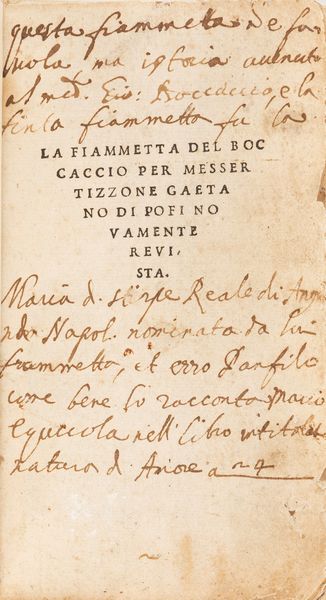 questa fiammetta nè fa
uola ma istoria auenuta
al med. Gio: Boccaccio, e la
finta fiammetta fu la
LA FIAMMETTA DEL BOC
CACCIO PER MESSER
TIZZONE GAETA
NO DI POFI NO
VAMENTE
REVI,
STA.
Maria d. stirpe Reale di
Napol. nominata da lui
fiammetta, et esso Panfilo
come bene lo racconta Mario
Equicola nell libro intitolato
natura d. Amore a